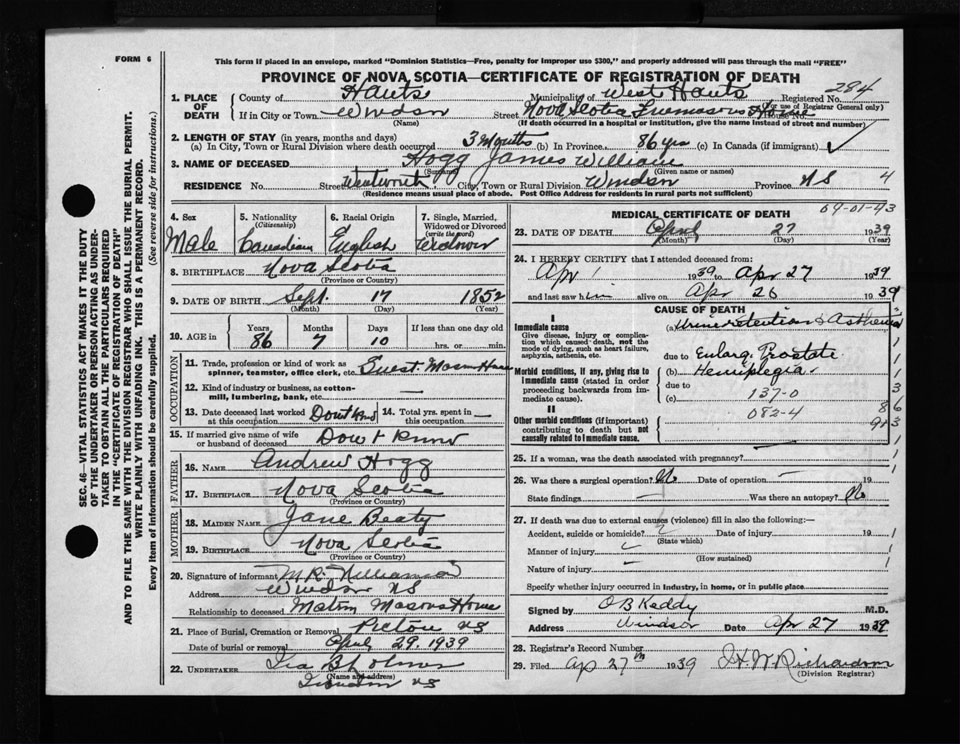 FORM 6
This form if placed in an envelope, marked "Dominion Statistics—Free, penalty for improper use $300," and properly addressed will pass through the mail "FREE"
PROVINCE OF NOVA SCOTIA—CERTIFICATE OF REGISTRATION OF DEATH
284
1. PLACE OF DEATH
County of Hants Municipality of West Hants Registered No.
(For use of Registrar General only)
If in City or Town Windsor Street Nova Scotia Freemasons Home House No.
(Name) (If death occurred in a hospital or institution, give the name instead of street and number)
2. LENGTH OF STAY (in years, months and days)
(a) In City, Town or Rural Division where death occurred 3 Months (b) In Province 86 yrs (c) In Canada (if immigrant)
3. NAME OF DECEASED Hogg James William
(Surname) (Given name or names)
RESIDENCE No. Street Wentworth City, Town or Rural Division Windsor Province NS 4
(Residence means usual place of abode. Post Office Address for residents in rural parts not sufficient)
4. Sex
Male
5. Nationality (Citizenship)
Canadian
6. Racial Origin
English
7. Single, Married, Widowed or Divorced (write the word)
Widower
8. BIRTHPLACE Nova Scotia
(Province or Country)
9. DATE OF BIRTH Sept. 17 1852
(Month) (Day) (Year)
10. AGE in
Years 86 Months 7 Days 10 If less than one day old
hrs. or min.
OCCUPATION
11. Trade, profession or kind of work as spinner, teamster, office clerk, etc. Guest Mason Home
12. Kind of industry or business, as cotton-mill, lumbering, bank, etc.
13. Date deceased last worked at this occupation Dont Know 14. Total yrs. spent in this occupation —
15. If married give name of wife or husband of deceased Don't Know
FATHER
16. NAME Andrew Hogg
17. BIRTHPLACE Nova Scotia
(Province or Country)
MOTHER
18. MAIDEN NAME Jane Beaty
19. BIRTHPLACE Nova Scotia
(Province or Country)
20. Signature of informant M.R. Williams
Address Windsor NS
Relationship to deceased Matron Masons Home
21. Place of Burial, Cremation or Removal Pictou NS
Date of burial or removal April 29. 1939
22. UNDERTAKER Ira B
(Name and address)
NS
MEDICAL CERTIFICATE OF DEATH
04-01-43
23. DATE OF DEATH April 27 1939
(Month) (Day) (Year)
24. I HEREBY CERTIFY that I attended deceased from:
Apr 1 1939 to Apr 27 1939
and last saw him alive on Apr 26 1939
CAUSE OF DEATH
I
Immediate cause
Give disease, injury or complication which caused death, not the mode of dying, such as heart failure, asphyxia, asthenia, etc.
(a) Urine retention & Asthenia
due to Enlarg. Prostate
Morbid conditions, if any, giving rise to immediate cause (stated in order proceeding backwards from immediate cause).
(b) Hemiplegia
due to 137-0
(c) 082-4
II
Other morbid conditions (if important) contributing to death but not causally related to immediate cause.
25. If a woman, was the death associated with pregnancy? —
26. Was there a surgical operation? No Date of operation — 19
State findings — Was there an autopsy? No
27. If death was due to external causes (violence) fill in also the following:—
Accident, suicide or homicide? Date of injury 19
(State which)
Manner of injury
(How sustained)
Nature of injury —
Specify whether injury occurred in industry, in home, or in public place
Signed by O B Keddy M.D.
Address Windsor Date Apr 27 1939
28. Registrar's Record Number
29. Filed Ap 27th 1939 W Richardson
(Division Registrar)
SEC. 46—VITAL STATISTICS ACT MAKES IT THE DUTY OF THE UNDERTAKER OR PERSON ACTING AS UNDERTAKER TO OBTAIN ALL THE PARTICULARS REQUIRED IN THE "CERTIFICATE OF REGISTRATION OF DEATH" AND TO FILE THE SAME WITH THE DIVISION REGISTRAR WHO SHALL ISSUE THE BURIAL PERMIT.
WRITE PLAINLY WITH UNFADING INK. THIS IS A PERMANENT RECORD.
Every item of information should be carefully supplied. (See reverse side for instructions.)